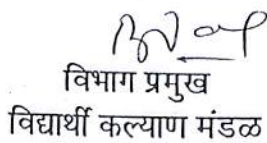 विभाग प्रमुख
विद्यार्थी कल्याण मंडळ